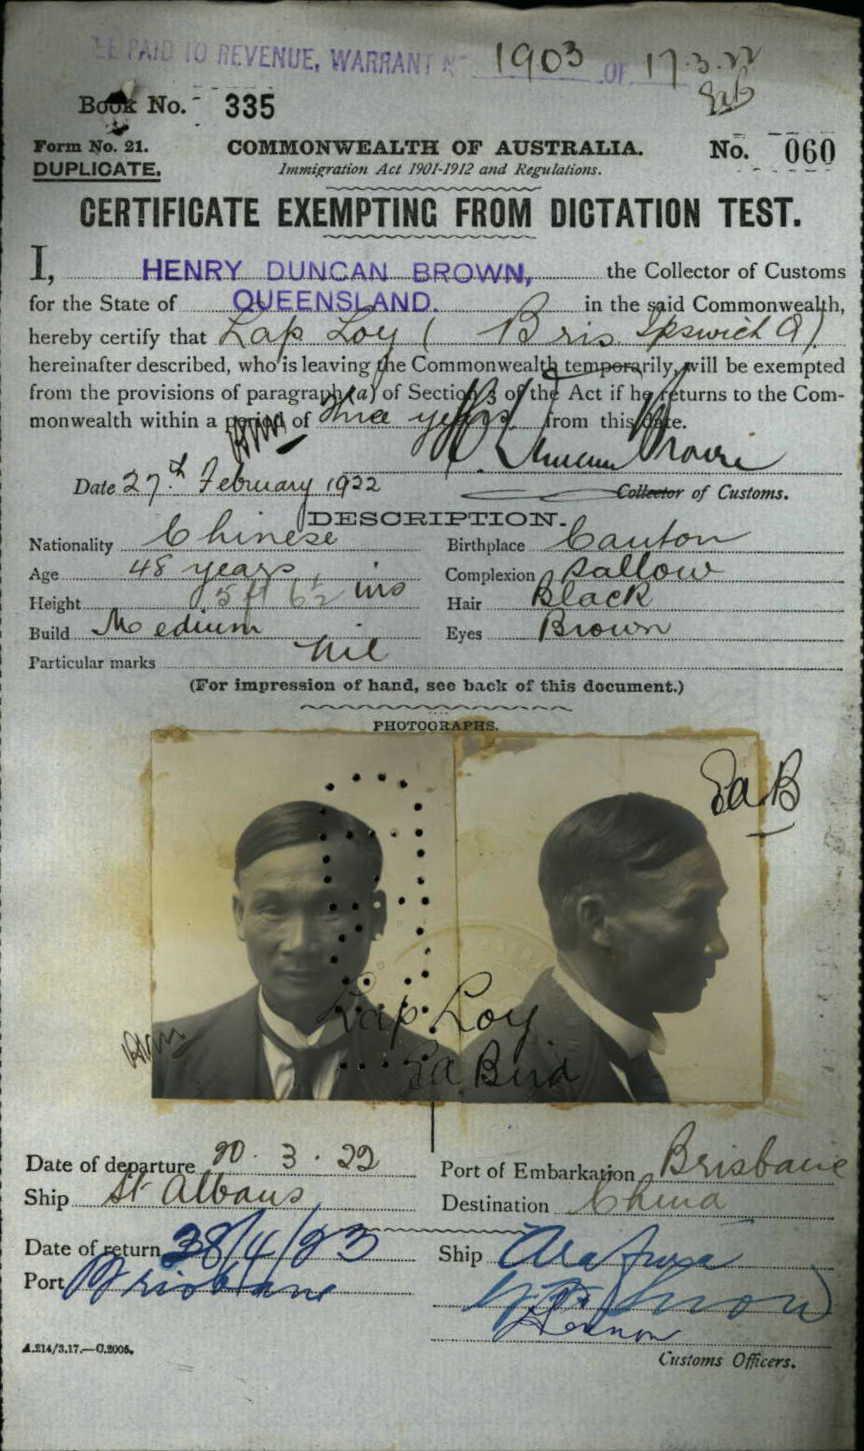 BE PAID TO REVENUE, WARRANT No 1903 OF 17.3.22
Book No. 335
Form No. 21. COMMONWEALTH OF AUSTRALIA. No. 060
DUPLICATE. Immigration Act 1901-1912 and Regulations.
CERTIFICATE EXEMPTING FROM DICTATION TEST.
I, HENRY DUNCAN BROWN, the Collector of Customs
for the State of QUEENSLAND. in the said Commonwealth,
hereby certify that Lap Loy ( Bris Ipswich
hereinafter described, who is leaving the Commonwealth temporarily, will be exempted
from the provisions of paragraph (a) of Section 3 of the Act if he returns to the Com-
monwealth within a period of years from this date.
H. Duncan Brown
Date 27th February 1922 Collector of Customs.
DESCRIPTION.
Nationality Chinese Birthplace Canton
Age 48 years Complexion Sallow
Height 5 ft 6½ ins Hair Black
Build Medium Eyes Brown
Particular marks Nil
(For impression of hand, see back of this document.)
PHOTOGRAPHS.
EaB
Lap Loy
Ea Bird
Date of departure 20.3.22 Port of Embarkation Brisbane
Ship St Albans Destination China
Date of return /4/23 Ship Arafura
Port Brisbane
A.214/3.17.—C.2005. Customs Officers.